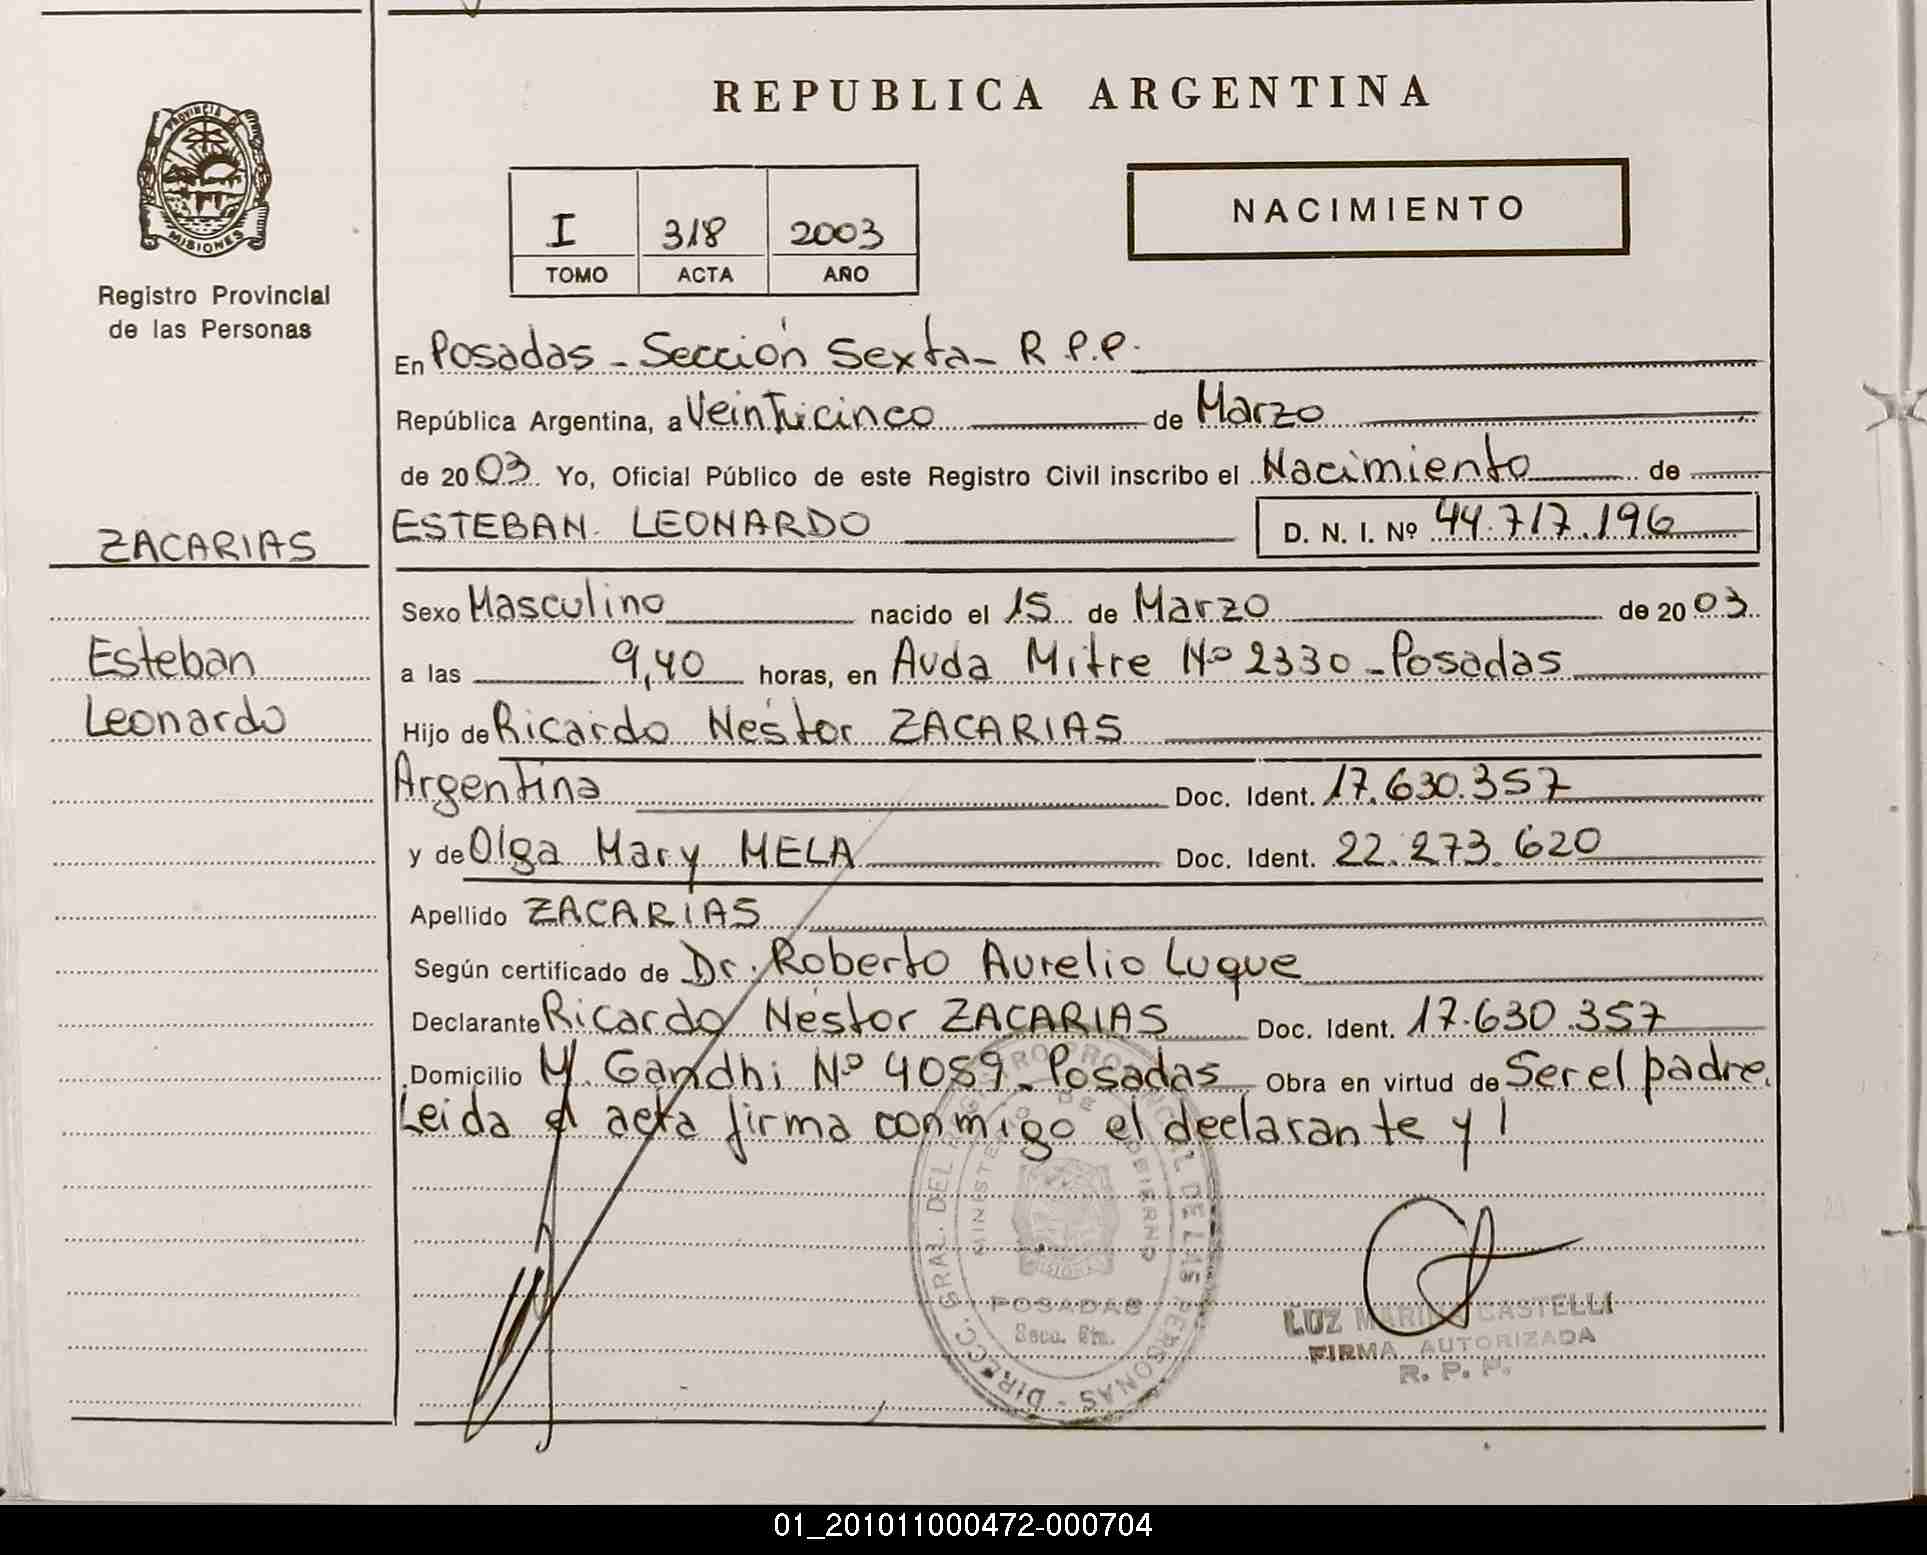 REPUBLICA ARGENTINA
PROVINCIA DE
MISIONES
Registro Provincial
de las Personas
I 318 2003
TOMO ACTA AÑO
NACIMIENTO
En Posadas - Sección Sexta - R P.P.
República Argentina, a Veinticinco de Marzo
de 2003 Yo, Oficial Público de este Registro Civil inscribo el Nacimiento de
ESTEBAN LEONARDO D. N. I. Nº 44.717.196
ZACARIAS
Esteban
Leonardo
Sexo Masculino nacido el 15 de Marzo de 2003
a las 9,40 horas, en Avda Mitre Nº 2330 - Posadas
Hijo de Ricardo Néstor ZACARIAS
Argentina Doc. Ident. 17.630.357
y de Olga Mary MELA Doc. Ident. 22.273.620
Apellido ZACARIAS
Según certificado de Dr. Roberto Aurelio Luque
Declarante Ricardo Néstor ZACARIAS Doc. Ident. 17.630.357
Domicilio M. Gandhi Nº 4059 - Posadas Obra en virtud de Ser el padre.
Leida el acta firma conmigo el declarante y
DIRECC. GRAL. DEL REGISTRO PROVINCIAL DE LAS PERSONAS -
MINISTERIO DE GOBIERNO
MISIONES
POSADAS
Secc. 6ta.
LUZ MARINA CASTELLI
FIRMA AUTORIZADA
R. P. P.
01_201011000472-000704